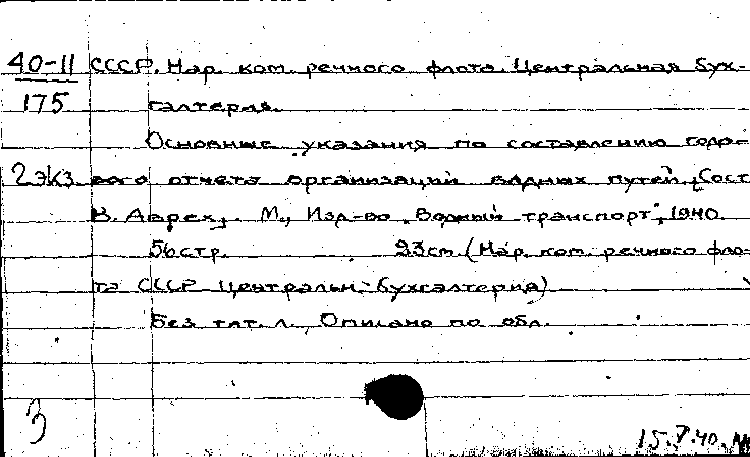 40-11 СССР. Нар. ком. речного флота. Центральная бух-
175 галтерия.
Основные указания по составлению годо-
2 экз вого отчета организаций водных путей. Сост.
В. Аврех. М., Изд-во "Водный транспорт", 1940.
56 стр. 23 см. (Нар. ком. речного фло-
та СССР. Центральн. бухгалтерия)
Без тит. л. Описано по обл.
3
15.V.40.